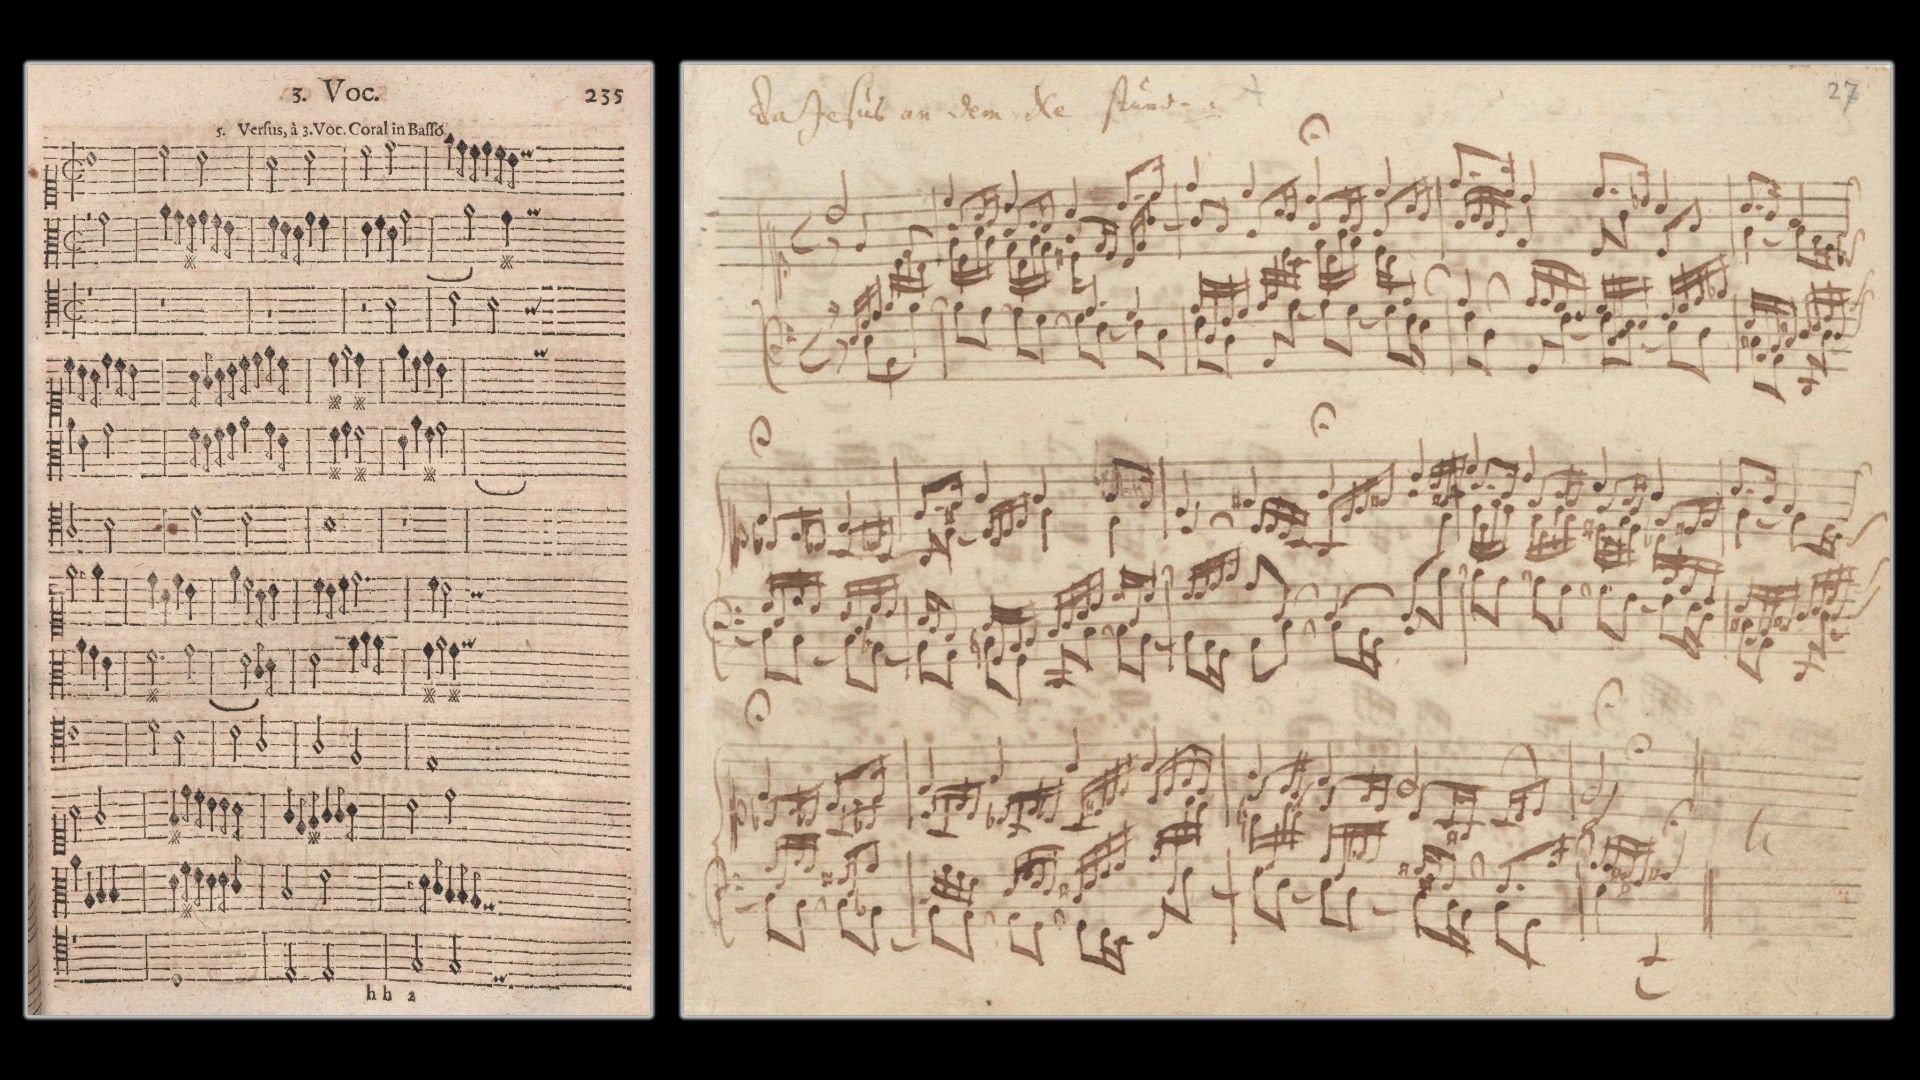 3. Voc.
235
5. Versus, à 3. Voc. Coral in Basso.
h h 2
Da Jesus an dem Xe stund
27